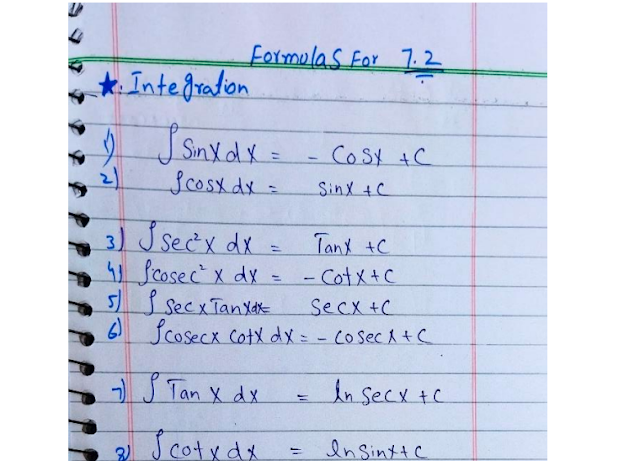 Formulas For 7.2
★. Integration
1) ∫ Sinx dx = - Cosx + C
2) ∫cosx dx = Sinx + C
3) ∫ Sec² x dx = Tanx + C
4) ∫cosec² x dx = - Cotx + C
5) ∫ Sec x Tanx dx = Secx + C
6) ∫cosecx Cotx dx = - Cosecx + C
7) ∫ Tan x dx = ln Secx + C
8) ∫ cotx dx = lnSinx + C